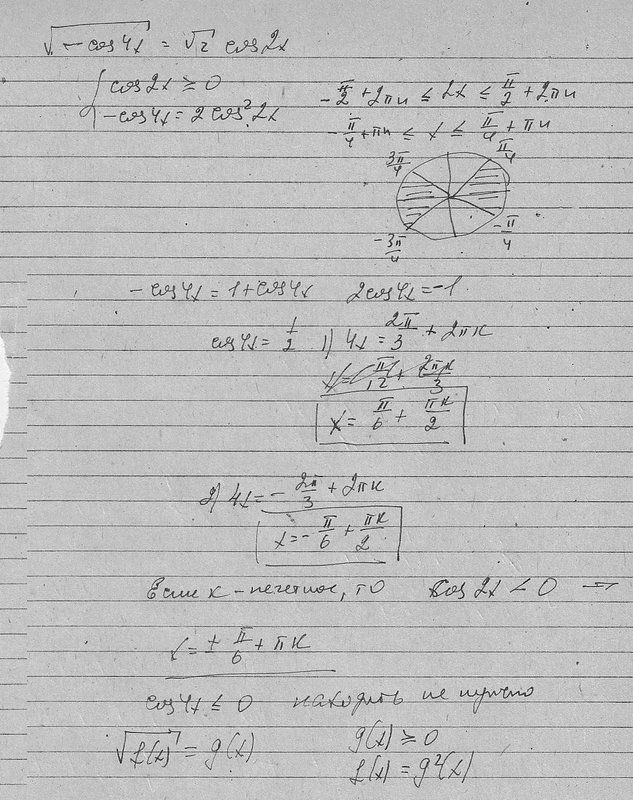 √-cos4x = √2 cos2x
{ cos2x ≥ 0
-cos4x = 2cos²2x
-π/2 + 2πn ≤ 2x ≤ π/2 + 2πn
-π/4 + πn ≤ x ≤ π/4 + πn
3π/4 π/4
-3π/4 -π/4
-cos4x = 1+cos4x 2cos4x = -1
cos4x = 1/2 1) 4x = 2π/3 + 2πk
x = π/12 + 2πk/3
x = π/6 + πk/2
2) 4x = -2π/3 + 2πk
x = -π/6 + πk/2
Если k - нечетное, то cos2x < 0
x = ± π/6 + πk
cos4x ≤ 0 находить не нужно
√f(x) = g(x) g(x) ≥ 0
f(x) = g²(x)